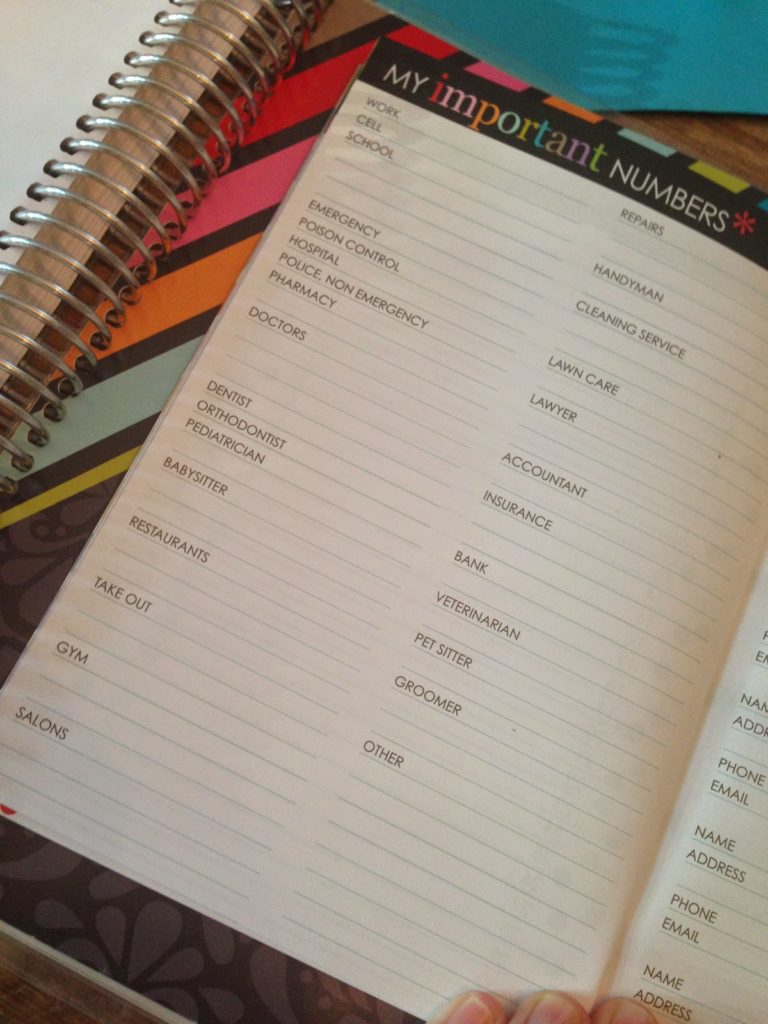 MY important NUMBERS*
WORK
CELL
SCHOOL
EMERGENCY
POISON CONTROL
HOSPITAL
POLICE, NON EMERGENCY
PHARMACY
DOCTORS
DENTIST
ORTHODONTIST
PEDIATRICIAN
BABYSITTER
RESTAURANTS
TAKE OUT
GYM
SALONS
REPAIRS
HANDYMAN
CLEANING SERVICE
LAWN CARE
LAWYER
ACCOUNTANT
INSURANCE
BANK
VETERINARIAN
PET SITTER
GROOMER
OTHER
PHONE
EMAIL
NAME
ADDRESS
PHONE
EMAIL
NAME
ADDRESS